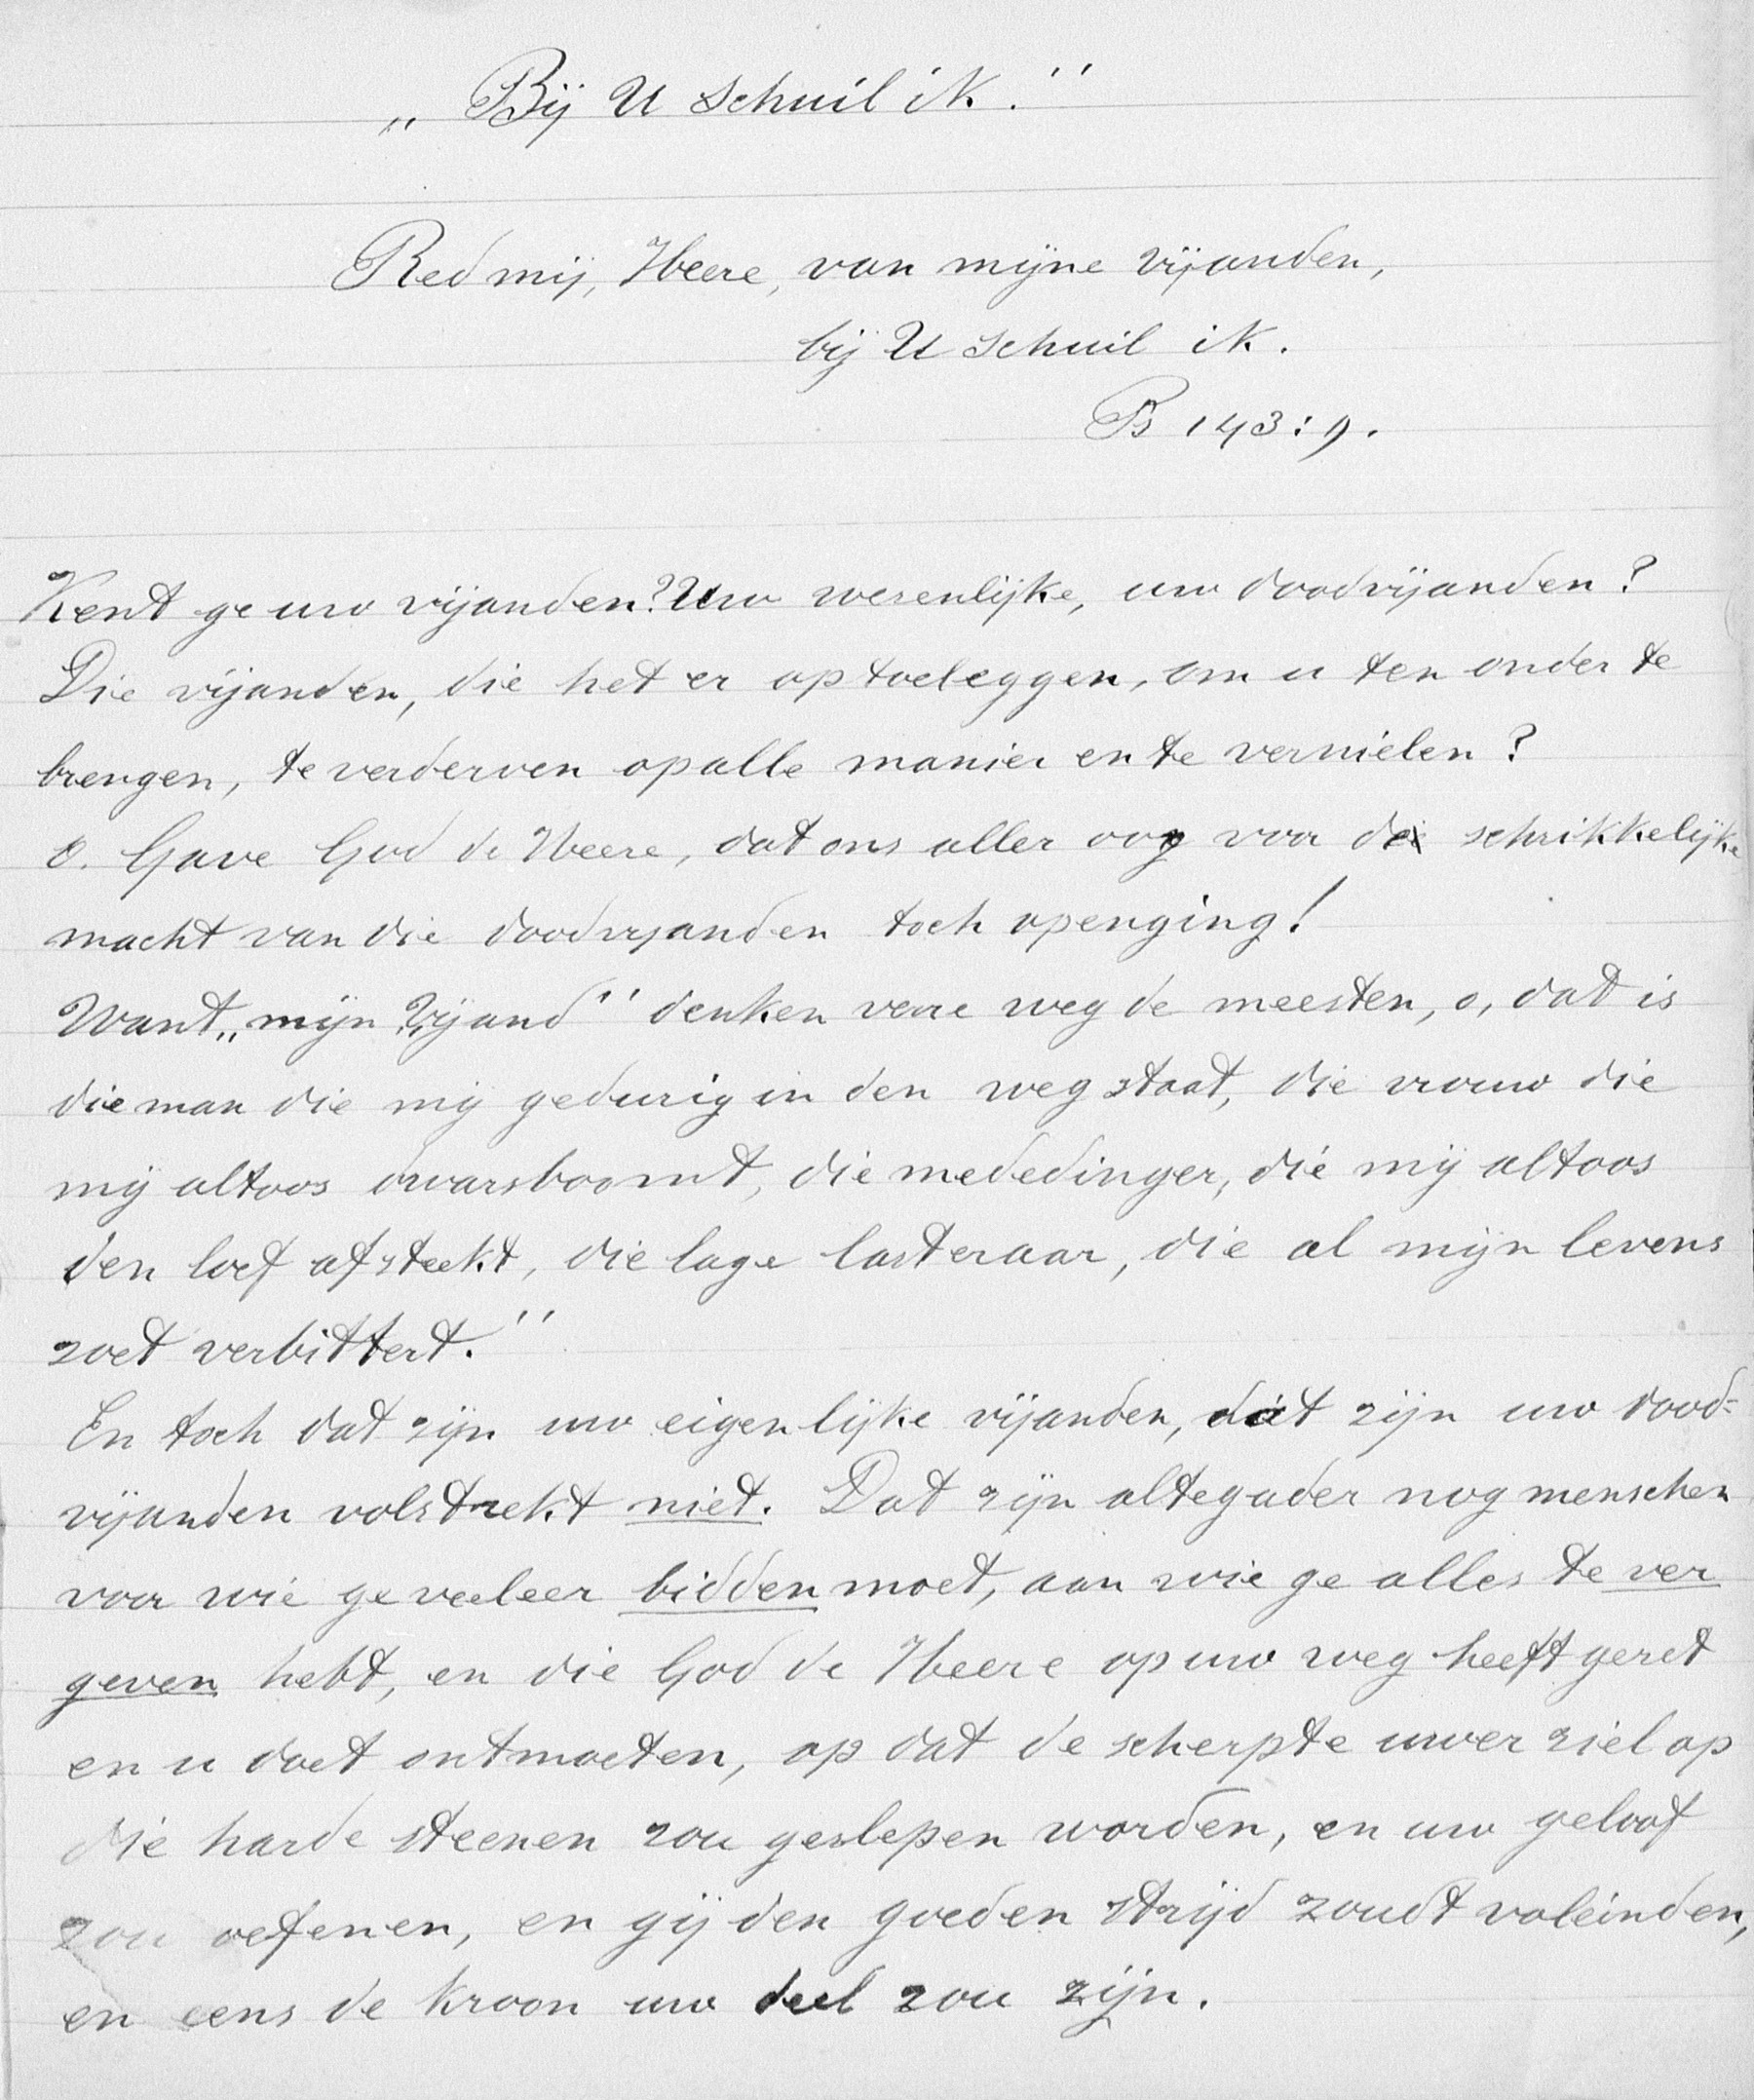 „Bij U schuil ik."
Red mij, Heere, van mijne vijanden,
bij U schuil ik.
Ps 143:9.
Kent ge uw vijanden? Uw wezenlijke, uw doodvijanden?
Die vijanden, die het er op toeleggen, om u ten onder te
brengen, te verderven op alle manier en te vernielen?
O. Gave God de Heere, dat ons aller oog voor de schrikkelijke
macht van die doodvijanden toch openging!
Want „mijn vijand" denken verre weg de meesten, o, dat is
die man die mij gedurig in den weg staat, die vrouw die
mij altoos dwarsboomt, die mededinger, die mij altoos
den loef afsteekt, die lage lasteraar, die al mijn levens
zoet verbittert."
En toch dat zijn uw eigenlijke vijanden, dát zijn uw dood-
vijanden volstrekt niet. Dat zijn altegader nog menschen
voor wie ge veeleer bidden moet, aan wie ge alles te ver
geven hebt, en die God de Heere op uw weg heeft gezet
en u doet ontmoeten, op dat de scherpte uwer ziel op
die harde steenen zou geslepen worden, en uw geloof
zou oefenen, en gij den goeden strijd zoudt voleinden,
en eens de kroon uw deel zou zijn.